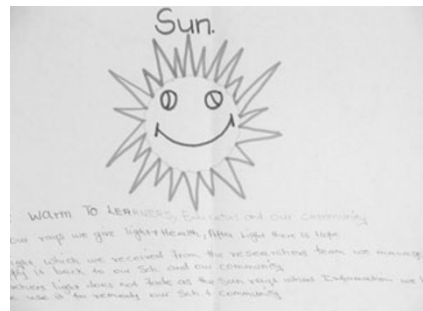 Sun.
: Warm To LEARNERS, Educator and our community
our rays we give light + Health, After Light there is hope
light which we received from the researchers team we manage
is back to our Sch and our community
light does not fade as the sun rays what Information we
use it to remedy our Sch & community